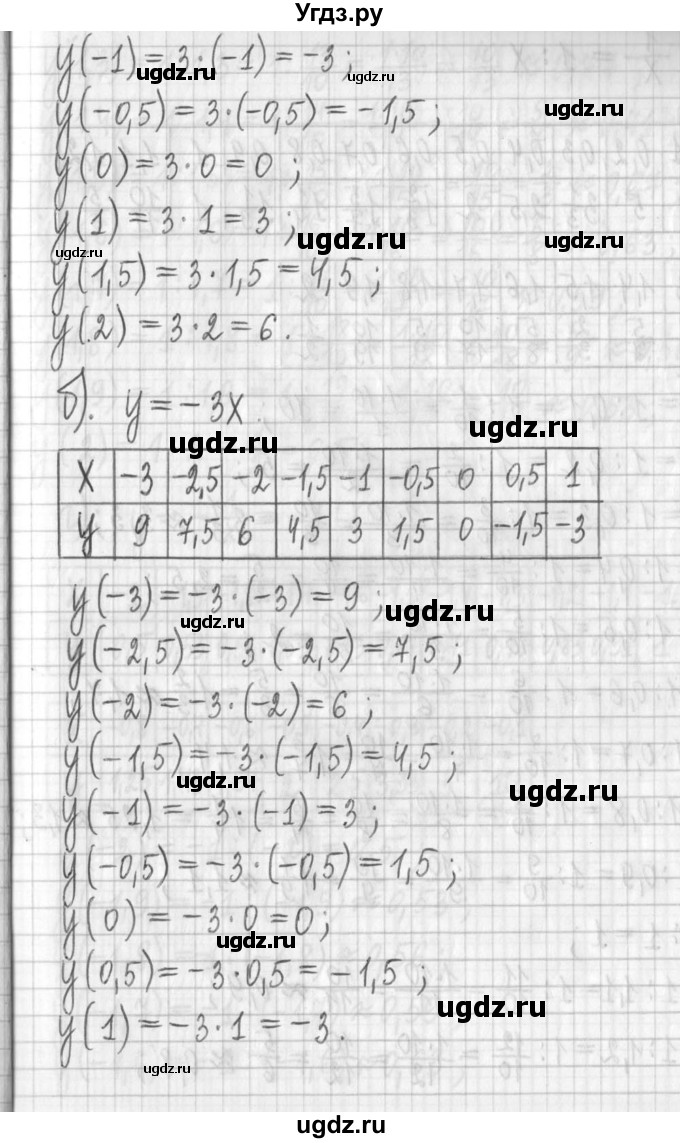 Угдз.ру
y(-1) = 3·(-1) = -3;
y(-0,5) = 3·(-0,5) = -1,5;
y(0) = 3·0 = 0;
y(1) = 3·1 = 3;
y(1,5) = 3·1,5 = 4,5;
y(2) = 3·2 = 6.
б). y = -3x.
x -3 -2,5 -2 -1,5 -1 -0,5 0 0,5 1
y 9 7,5 6 4,5 3 1,5 0 -1,5 -3
y(-3) = -3·(-3) = 9;
y(-2,5) = -3·(-2,5) = 7,5;
y(-2) = -3·(-2) = 6;
y(-1,5) = -3·(-1,5) = 4,5;
y(-1) = -3·(-1) = 3;
y(-0,5) = -3·(-0,5) = 1,5;
y(0) = -3·0 = 0;
y(0,5) = -3·0,5 = -1,5;
y(1) = -3·1 = -3.
ugdz.ru